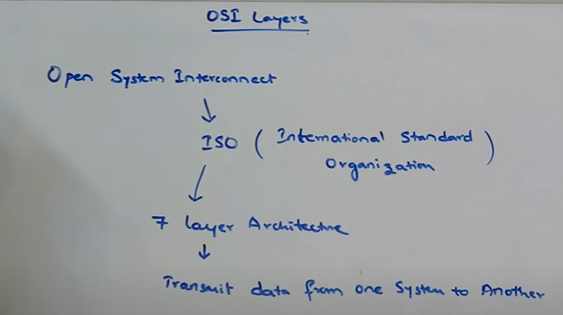 OSI Layers
Open System Interconnect
ISO ( International Standard
Organization )
7 layer Architecture
Transmit data from one System to Another